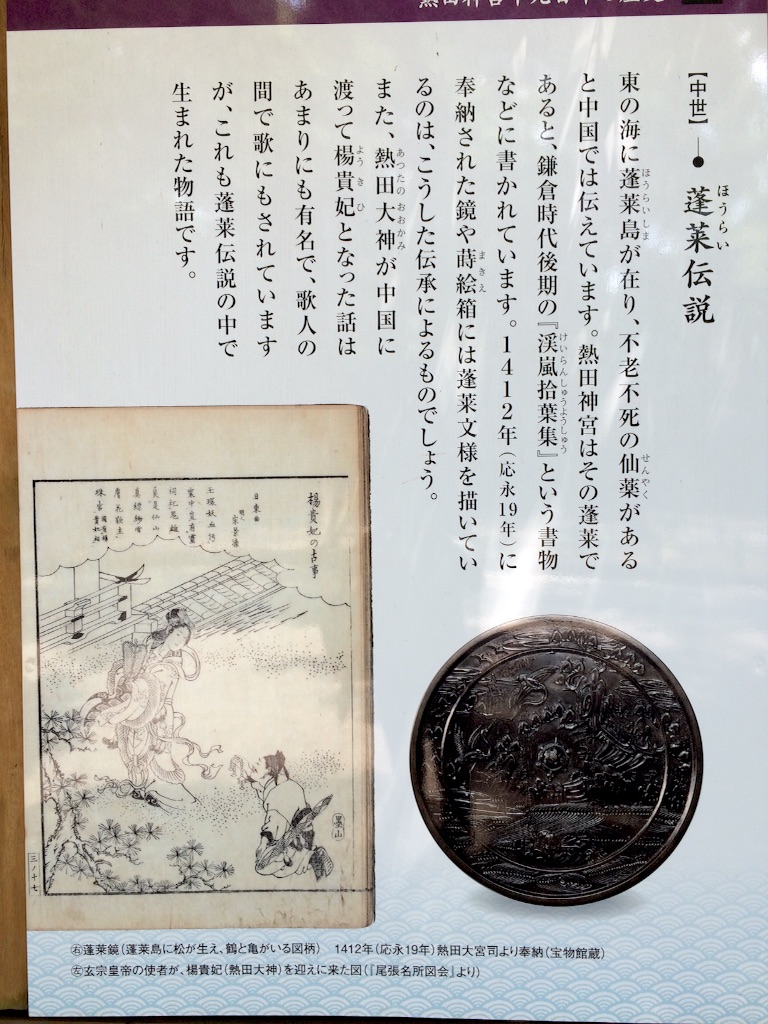 【中世】 ● 蓬莱伝説
ほうらい
東の海に蓬莱島が在り、不老不死の仙薬がある
ほうらいしま
せんやく
と中国では伝えています。熱田神宮はその蓬莱で
あると、鎌倉時代後期の『渓嵐拾葉集』という書物
けいらんしゅうようしゅう
などに書かれています。1412年(応永19年)に
奉納された鏡や蒔絵箱には蓬莱文様を描いてい
まきえ
るのは、こうした伝承によるものでしょう。
また、熱田大神が中国に
あつたのおおかみ
渡って楊貴妃となった話は
ようきひ
あまりにも有名で、歌人の
間で歌にもされています
が、これも蓬莱伝説の中で
生まれた物語です。
楊貴妃の古事
日東曲
宋景濂
三ノ十七
墨山
㊨蓬莱鏡(蓬莱島に松が生え、鶴と亀がいる図柄) 1412年(応永19年)熱田大宮司より奉納(宝物館蔵)
㊧玄宗皇帝の使者が、楊貴妃(熱田大神)を迎えに来た図(『尾張名所図会』より)